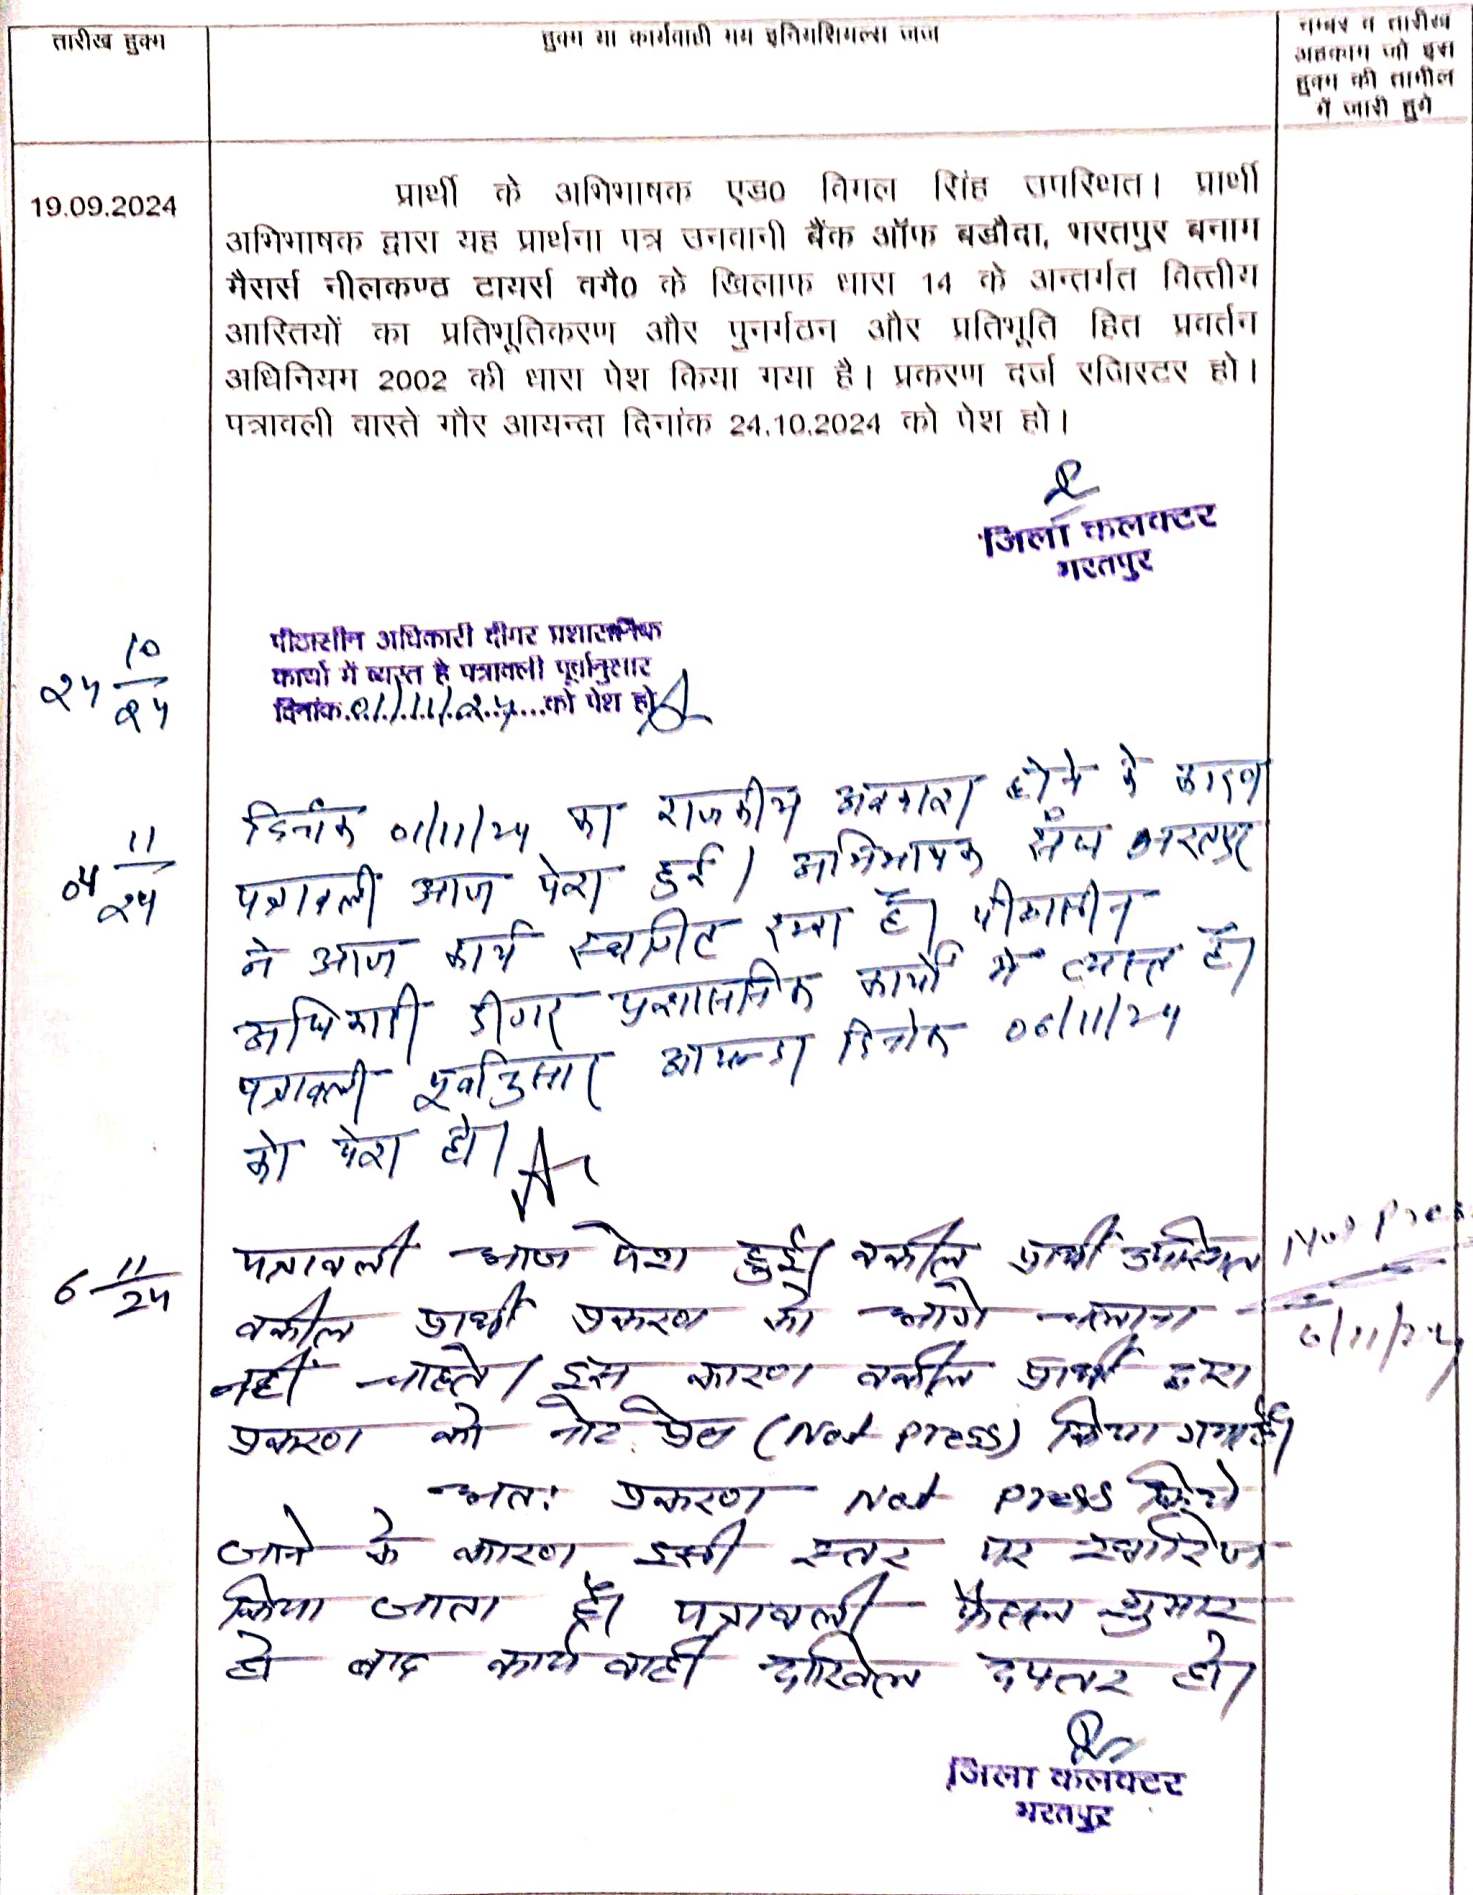 तारीख हुक्म
हुक्म या कार्यवाही मय इनिशियल्स जज
नम्बर व तारीख
अहकाम जो इस
हुक्म की तामील
में जारी हुये
19.09.2024
प्रार्थी के अभिभाषक एड0 विमल सिंह उपस्थित। प्रार्थी
अभिभाषक द्वारा यह प्रार्थना पत्र उनवानी बैंक ऑफ बडौदा, भरतपुर बनाम
मैसर्स नीलकण्ठ टायर्स वगै0 के खिलाफ धारा 14 के अन्तर्गत वित्तीय
आस्तियों का प्रतिभूतिकरण और पुनर्गठन और प्रतिभूति हित प्रवर्तन
अधिनियम 2002 की धारा पेश किया गया है। प्रकरण दर्ज रजिस्टर हो।
पत्रावली वास्ते गौर आयन्दा दिनांक 24.10.2024 को पेश हो।
जिला कलक्टर
भरतपुर
24 10/24
पीठासीन अधिकारी दीगर प्रशासनिक
कार्यो में व्यस्त है पत्रावली पूर्वानुसार
दिनांक 01/11/24 को पेश हो
04 11/24
दिनांक 01/11/24 का राजकीय अवकाश होने के कारण
पत्रावली आज पेश हुई। अभिभाषक संघ भरतपुर
ने आज कार्य स्थगित रखा है। पीठासीन
अधिकारी दीगर प्रशासनिक कार्यों में व्यस्त है।
पत्रावली पूर्वानुसार आयन्दा दिनांक 06/11/24
को पेश हो।
6 11/24
पत्रावली आज पेश हुई। वकील प्रार्थी उपस्थित
वकील प्रार्थी प्रकरण को आगे चलाना
नहीं चाहते। इस कारण वकील प्रार्थी द्वारा
प्रकरण को नोट प्रेस (Not press) किया गया है।
अतः प्रकरण Not press किये
जाने के कारण इसी स्तर पर खारिज
किया जाता है। पत्रावली फैसल शुमार
हो बाद कार्यवाही दाखिल दफ्तर हो।
Not Press
6/11/24
जिला कलक्टर
भरतपुर